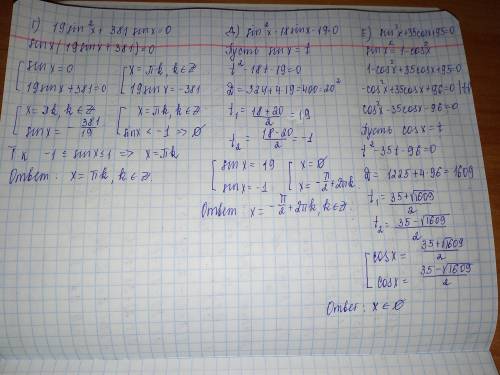 Г) 19sin²x + 381 sinx = 0
sinx (19sinx + 381) = 0
[ sinx = 0
19sinx + 381 = 0
[ x = πk, k ∈ Z
19sinx = -381
[ x = πk, k ∈ Z
sinx = - 381/19
[ x = πk, k ∈ Z
sinx < -1 => ∅
Т.к -1 ≤ sinx ≤ 1 => x = πk
Ответ: x = πk, k ∈ Z.
Д) sin²x - 18sinx - 19 = 0
Пусть sinx = t
t² - 18t - 19 = 0
Д = 324 + 4·19 = 400 = 20²
t₁ = (18 + 20)/2 = 19
t₂ = (18 - 20)/2 = -1
[ sinx = 19
sinx = -1
[ x = ∅
x = - π/2 + 2πk
Ответ: x = - π/2 + 2πk, k ∈ Z.
Е) sin²x + 35cosx + 95 = 0
sinx² = 1 - cos²
1 - cos²x + 35cosx + 95 = 0
-cos²x + 35cosx + 96 = 0 |·(-1)
cos²x - 35cosx - 96 = 0
Пусть cosx = t
t² - 35t - 96 = 0
Д = 1225 + 4·96 = 1609
t₁ = (35 + √1609)/2
t₂ = (35 - √1609)/2
[ cosx = (35 + √1609)/2
cosx = (35 - √1609)/2
Ответ: x ∈ ∅